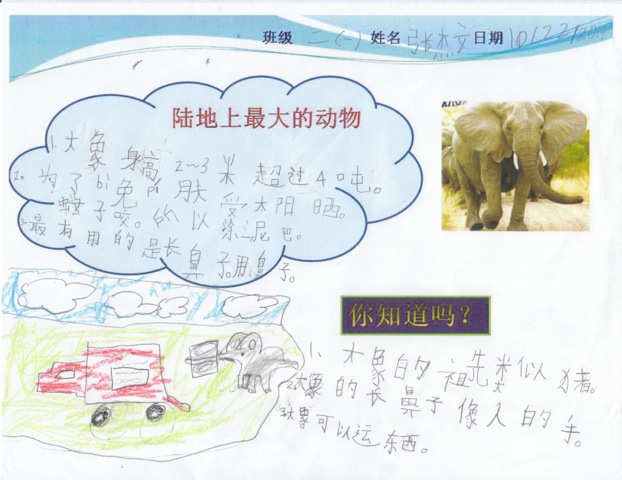 班级 二(一) 姓名 张杰文 日期 10/22/
陆地上最大的动物
1. 大象身高2~3米超过4吨。
2. 为了bì免pí肤受太阳晒。
蚊子咬。所以涂泥巴。
3. 最有用的是长鼻子。用鼻子。
你知道吗?
1. 大象的祖先类似猪。
2. 大象的长鼻子像人的手。
3. 大象可以运东西。